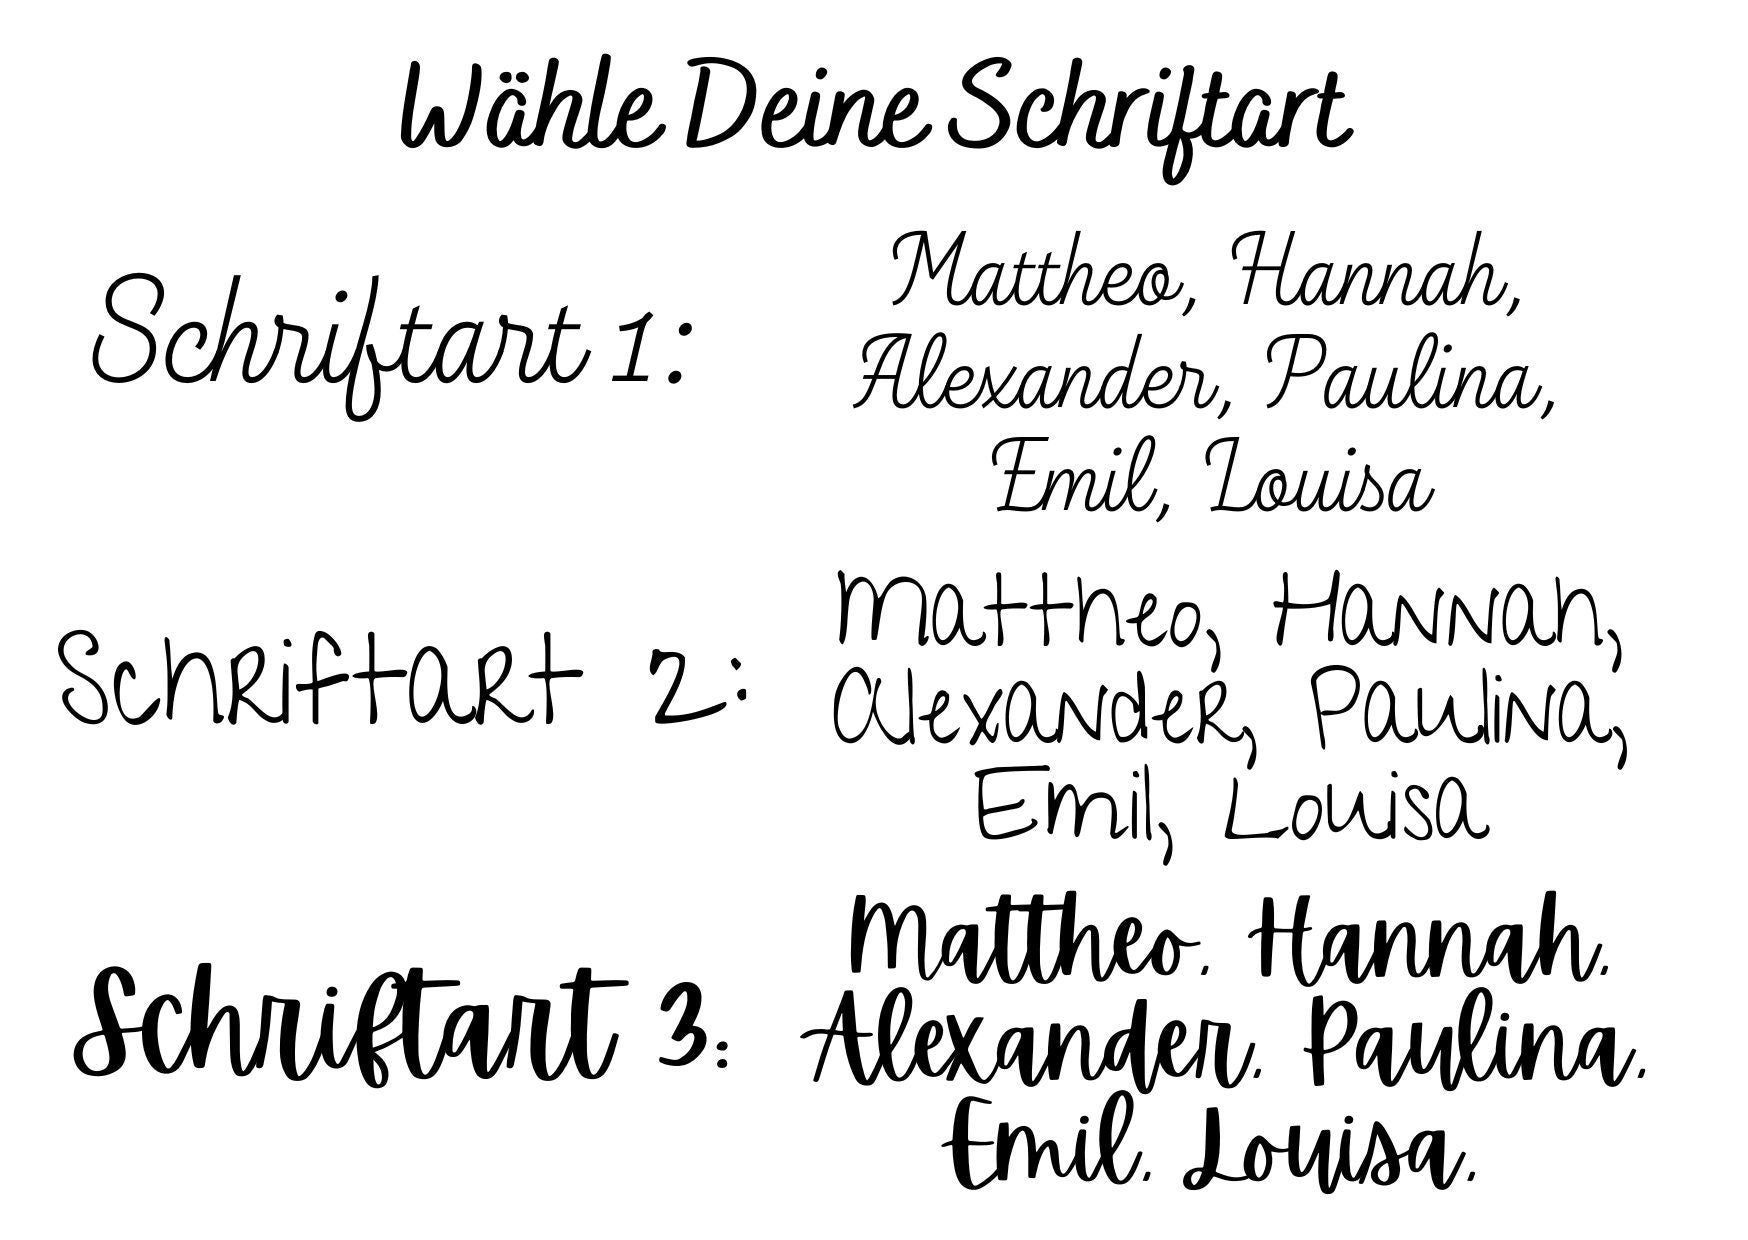 Wähle Deine Schriftart
Schriftart 1:
Mattheo, Hannah,
Alexander, Paulina,
Emil, Louisa
Schriftart 2:
Mattheo, Hannah,
Alexander, Paulina,
Emil, Louisa
Schriftart 3:
Mattheo, Hannah,
Alexander, Paulina,
Emil, Louisa,